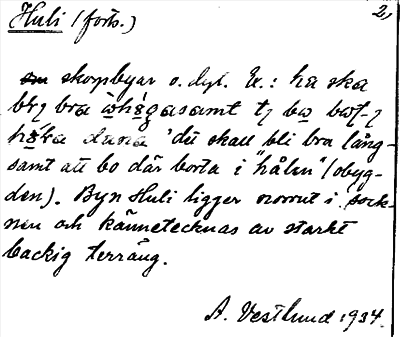 Huli (forts.) 2,
skogsbyar o. dyl. Ex.: ha ska
bra
dana 'du skall bli bra lång-
samt att bo där borta i "hålen" (obyg-
den). Byn Huli ligger ovanst i sock-
nen och kännetecknas av starkt
backig terräng.
A. Vestlund 1934.